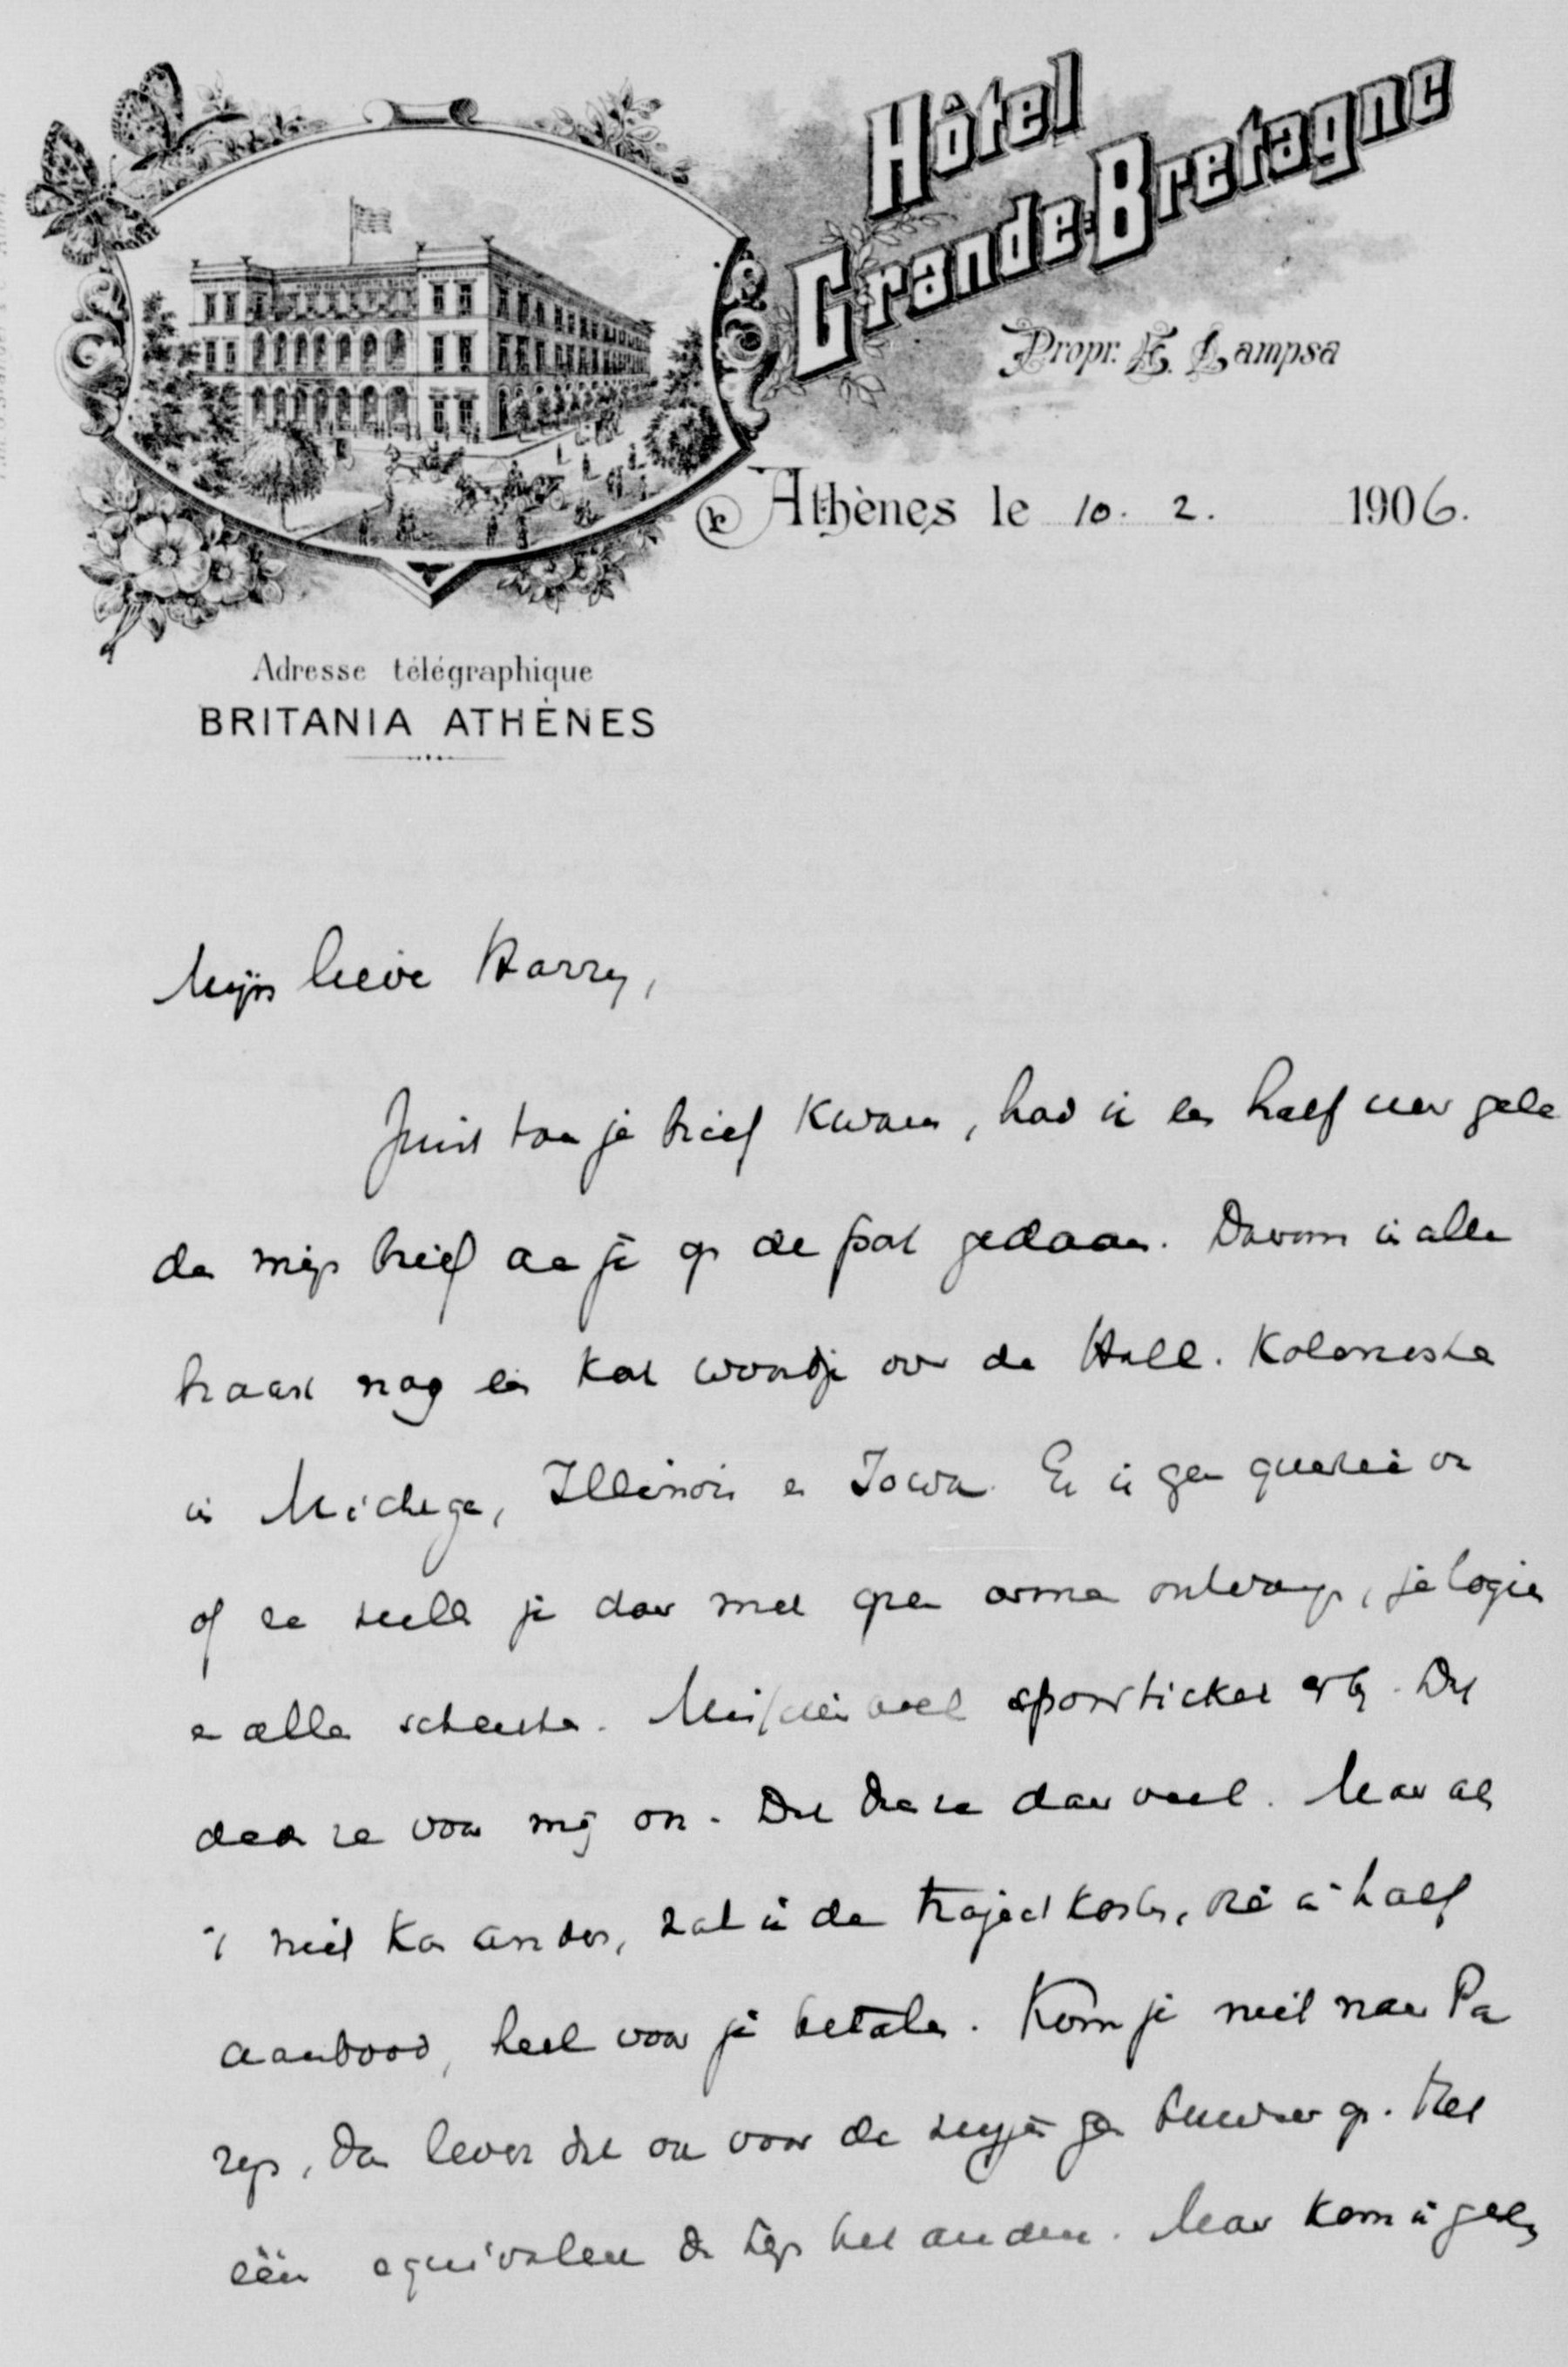 Hôtel
Grande-Bretagne
Propr. E. Lampsa
Athènes le 10. 2. 1906.
Adresse télégraphique
BRITANIA ATHÈNES
Mijn lieve Harry,
Juist toen je brief kwam, had ik een half uur gele
den mijn brief aan je op de post gedaan. Daarom in alle
haast nog een kort woordje over de Holl. Kolonisten
in Michigan, Illinois en Iowa. Er is geen quaestie van
of ze zullen je daar met open armen ontvangen, je logies
en alles schenken. Misschien ook spoorticket erbij. Dat
deden ze voor mij ook. Dat doen ze daar veel. Maar als
't niet kan anders, zal ik de trajectkosten, die ik half
aanbood, heel voor je betalen. Kom je niet naar Pa
rijs, dan levert dat ook voor de
één equivaleert dan het andere. Maar kom ik